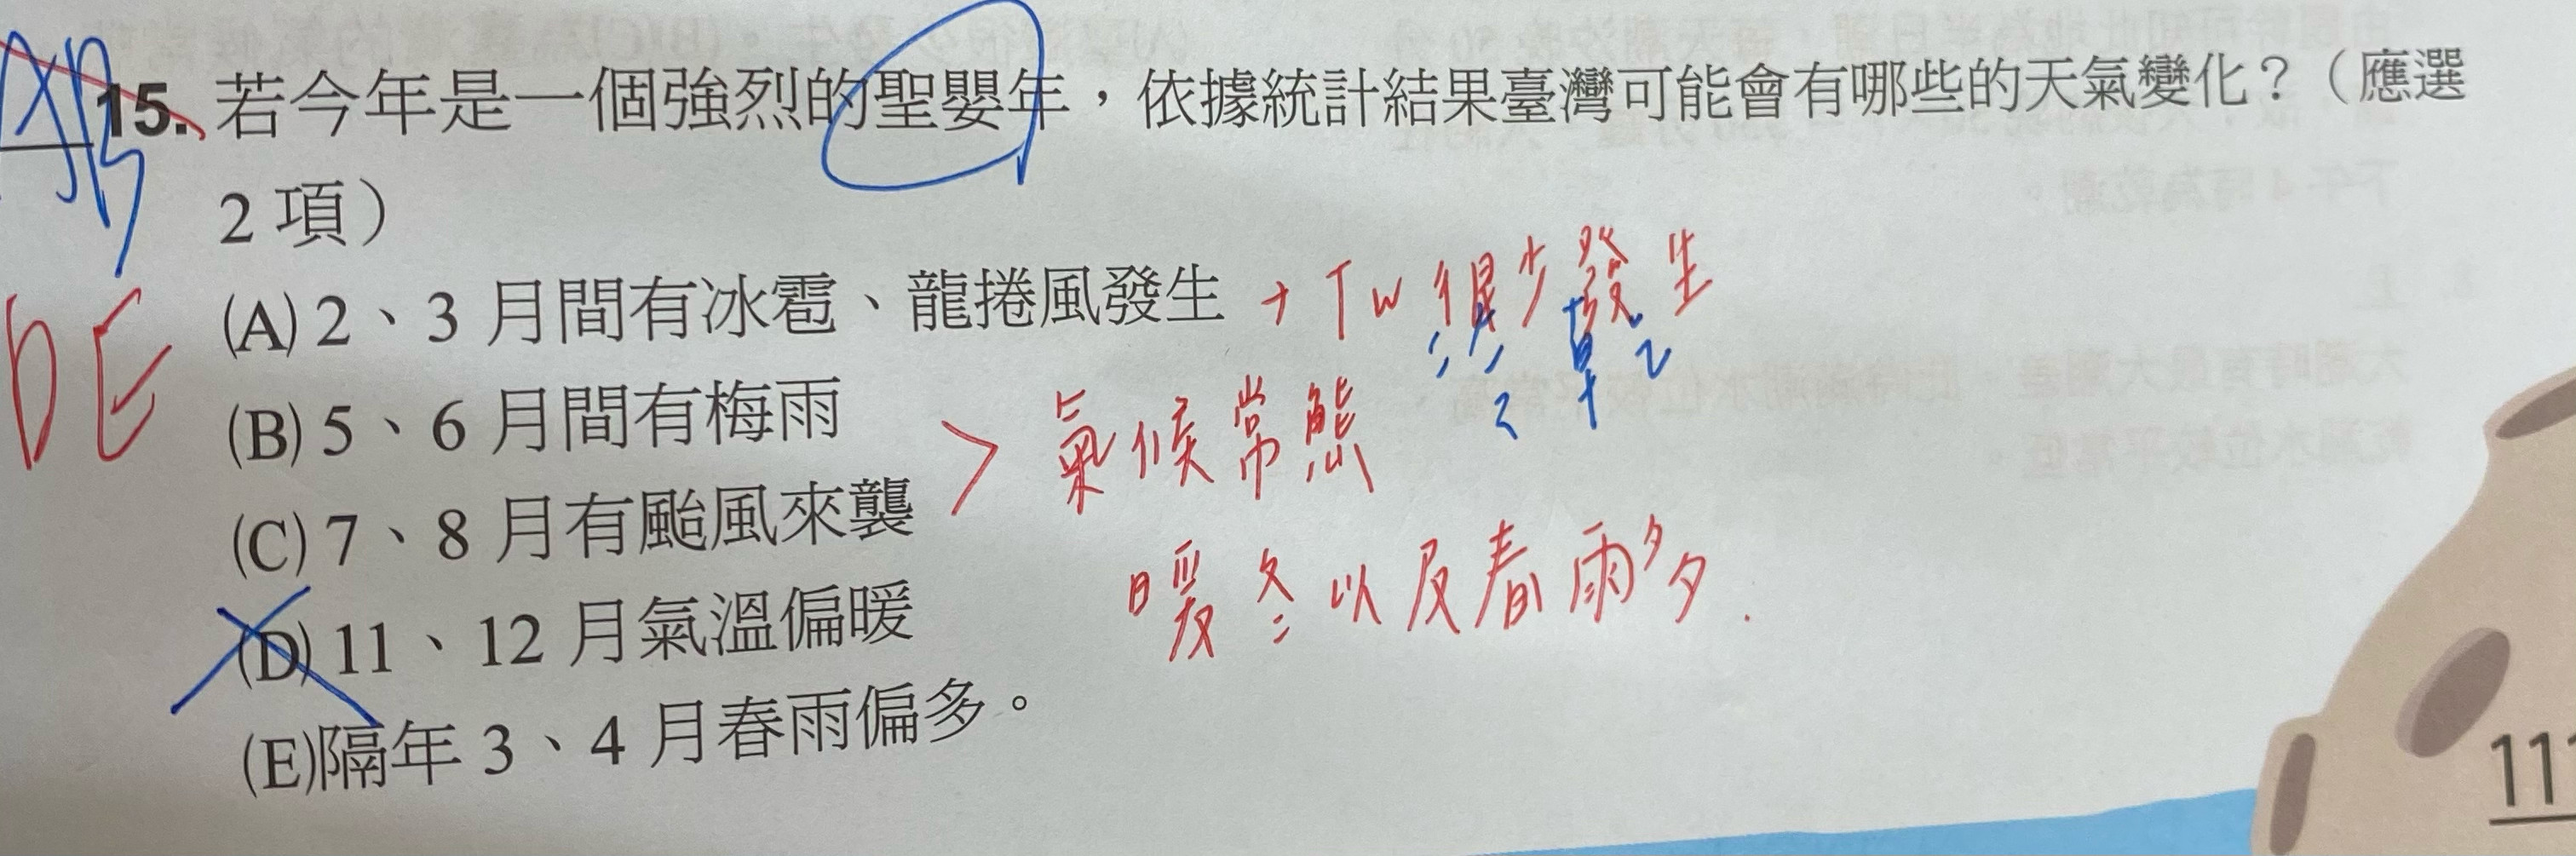 AB
15. 若今年是一個強烈的聖嬰年，依據統計結果臺灣可能會有哪些的天氣變化？（應選
2 項）
DE
(A) 2、3 月間有冰雹、龍捲風發生 → TW 很少發生
(B) 5、6 月間有梅雨
> 氣候常態
(C) 7、8 月有颱風來襲
暖冬以及春雨多.
(D) 11、12 月氣溫偏暖
(E)隔年 3、4 月春雨偏多。
111